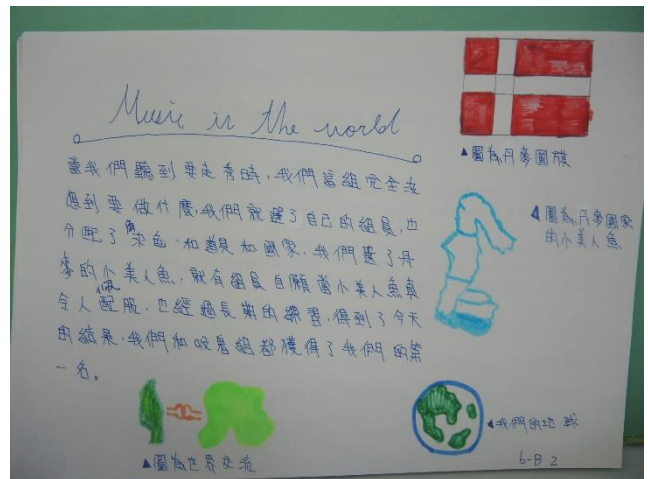 Music in the world
▲圖為丹麥國旗
當我們聽到要走秀時,我們當組完全沒
想到要做什麼,我們就選了自己的組員,也
分配了角色,和道具和國家,我們選了丹
麥的小美人魚,就有組員自願當小美人魚真
令人佩服,也經過長期的練習,得到了今天
的結果,我們和 組都獲得了我們的第
一名。
◀圖為丹麥國家
的小美人魚
▲圖為世界交流
◀我們的地球
6-B 2